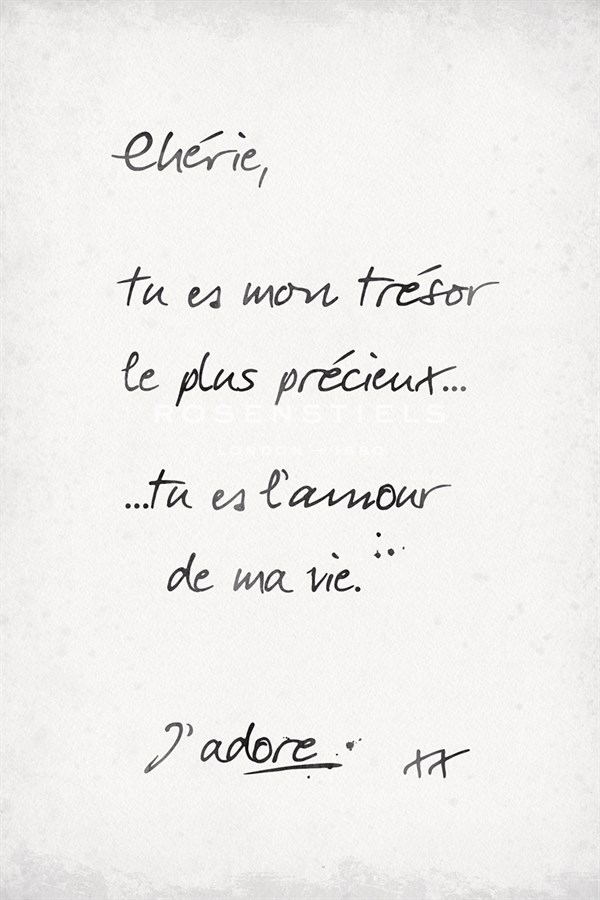 Chérie,
tu es mon trésor
le plus précieux...
ROSENSTIELS
LONDON – 1880
...tu es l'amour
de ma vie.
J'adore xx